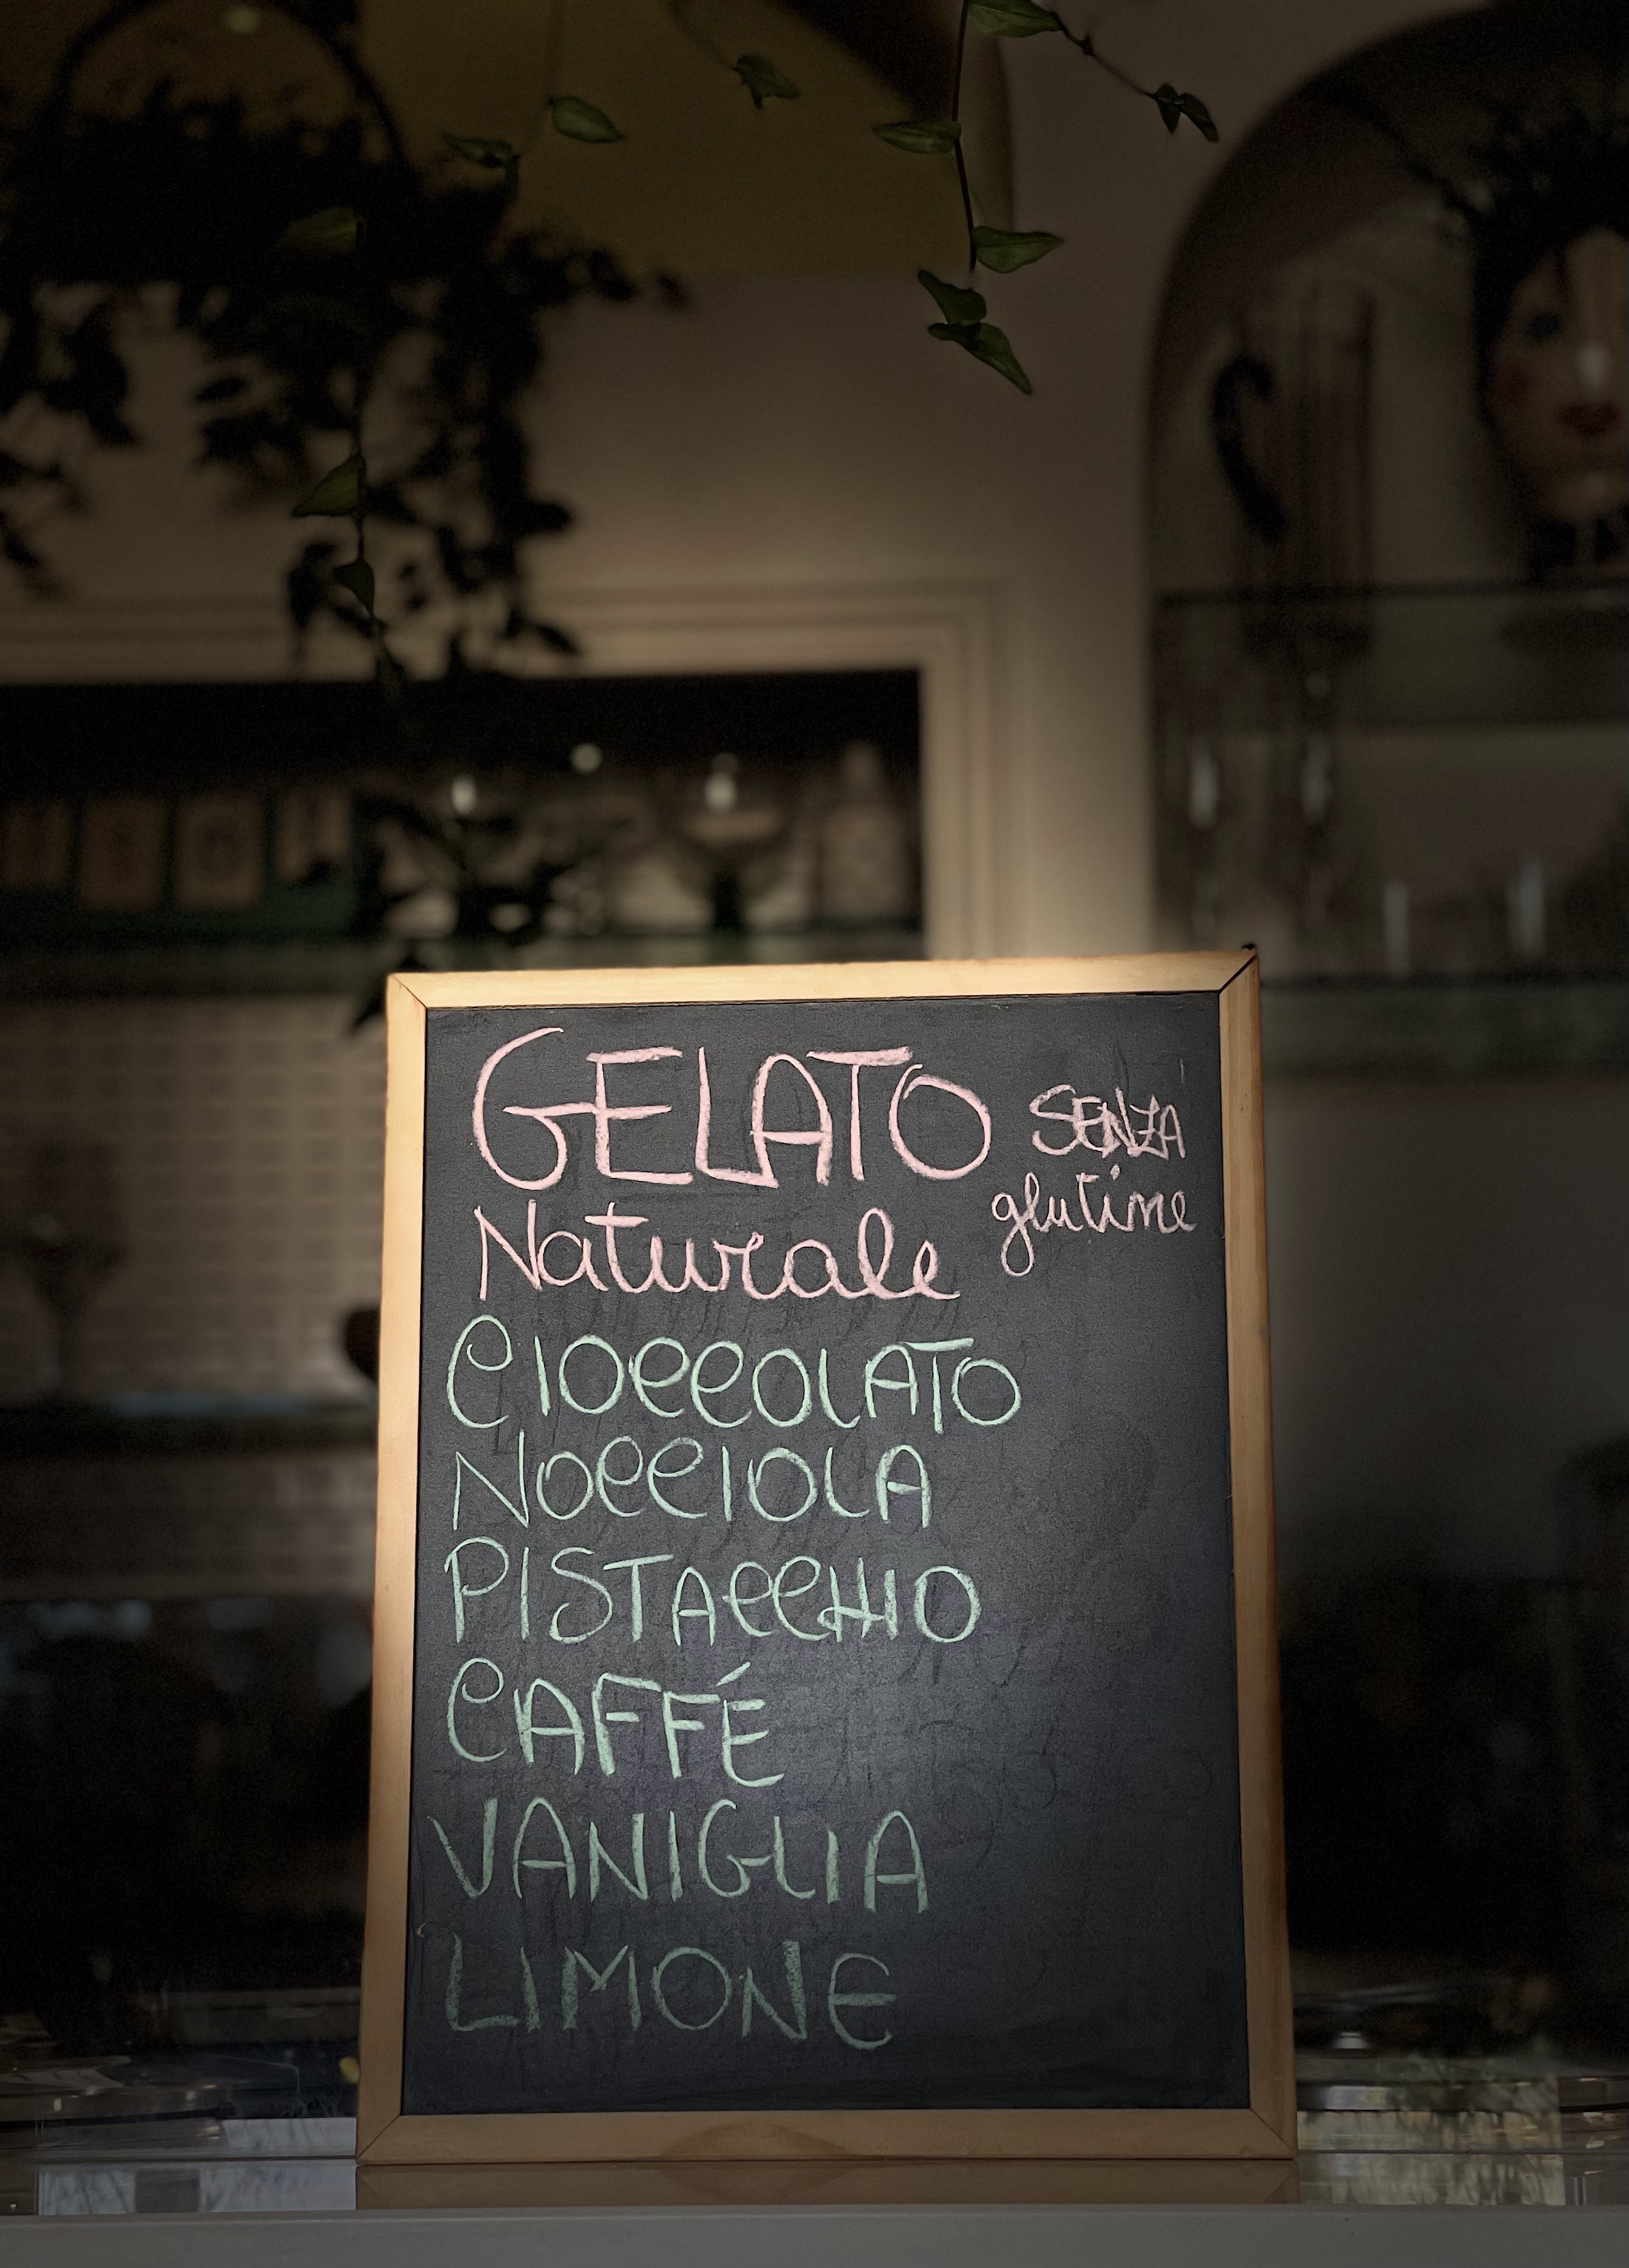 GELATO SENZA
glutine
Naturale
CIOCCOLATO
NOCCIOLA
PISTACCHIO
CAFFÉ
VANIGLIA
LIMONE